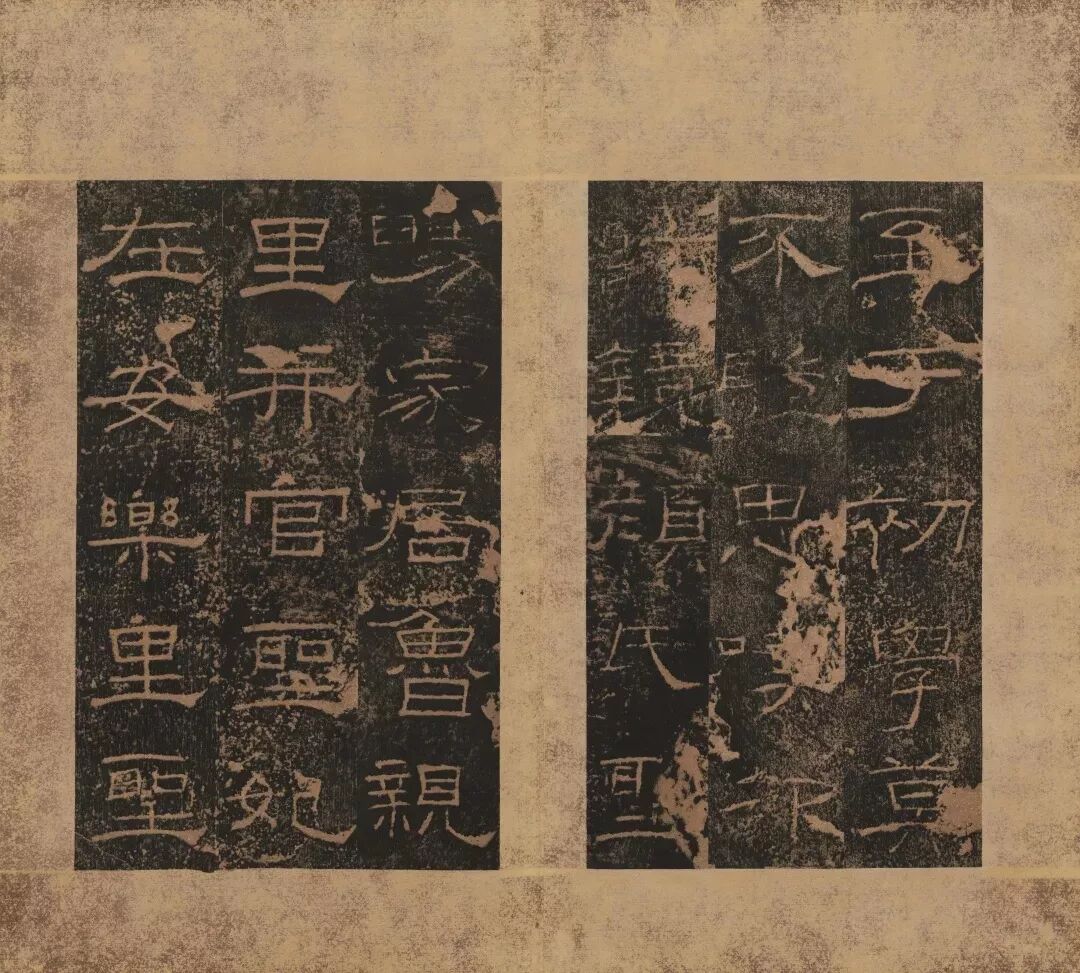 至于初學莫
不思嘆卬
師鏡顏氏聖
舅家居魯親
里并官聖妃
在安樂里聖